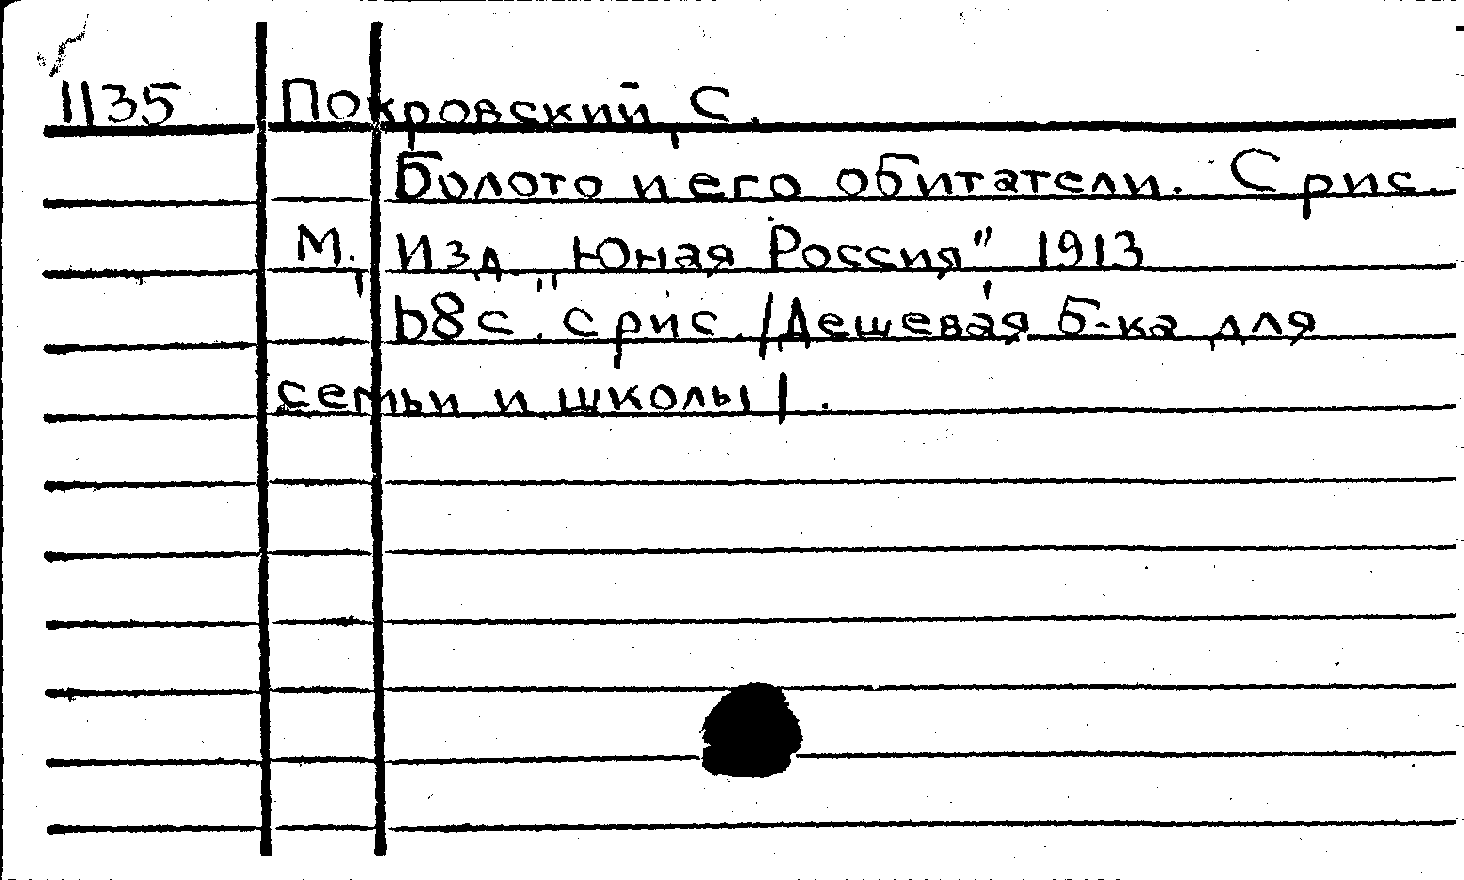 1135 Покровский, С.
Болото и его обитатели. С рис.
М., Изд. "Юная Россия" 1913
68 с. с рис. /Дешевая б-ка для
семьи и школы/.